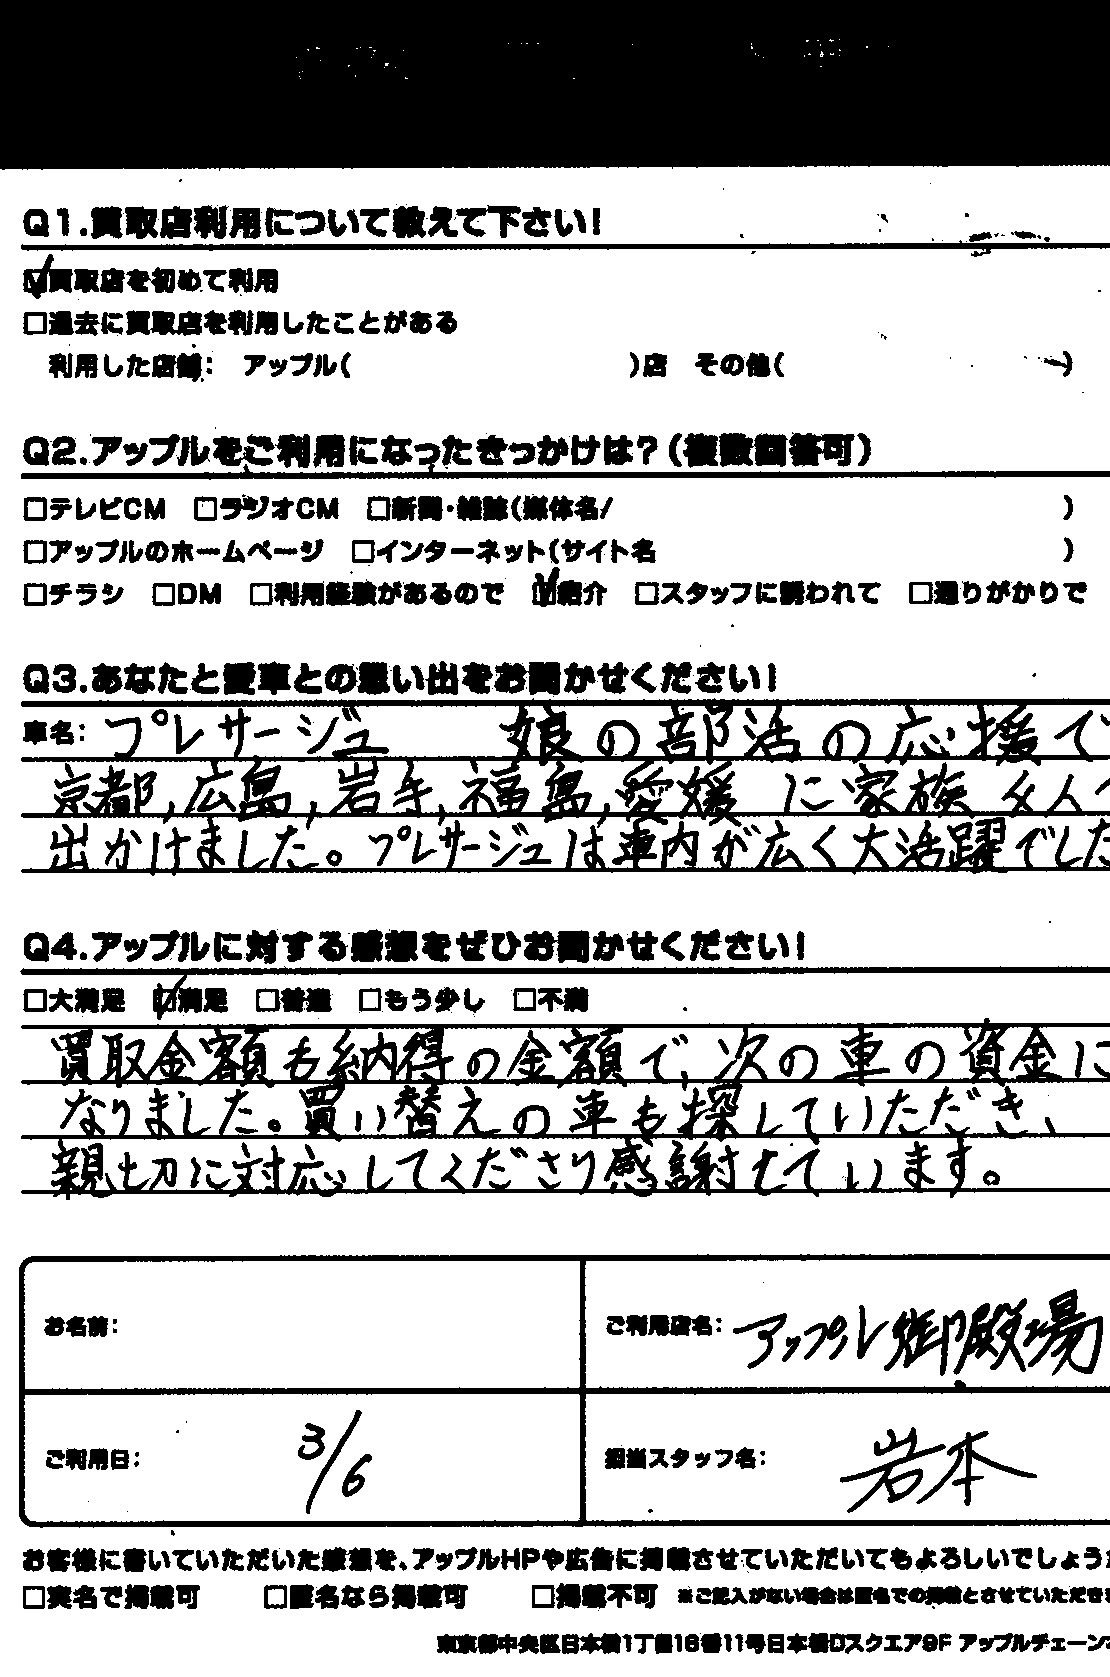 Q1.買取店利用について教えて下さい!
☑買取店を初めて利用
□過去に買取店を利用したことがある
利用した店舗: アップル( )店 その他( )
Q2.アップルをご利用になったきっかけは?(複数回答可)
□テレビCM □ラジオCM □新聞・雑誌(媒体名/ )
□アップルのホームページ □インターネット(サイト名 )
□チラシ □DM □利用経験があるので ☑紹介 □スタッフに誘われて □通りがかりで
Q3.あなたと愛車との思い出をお聞かせください!
車名: プレサージュ 娘の部活の応援で
京都,広島,岩手,福島,愛媛に家族4人で
出かけました。プレサージュは車内が広く大活躍でした
Q4.アップルに対する感想をぜひお聞かせください!
□大満足 ☑満足 □普通 □もう少し □不満
買取金額も納得の金額で、次の車の資金に
なりました。買い替えの車も探していただき、
親切に対応してくださり感謝しています。
お名前: ご利用店名: アップル御殿場
ご利用日: 3/6 担当スタッフ名: 岩本
お客様に書いていただいた感想を、アップルHPや広告に掲載させていただいてもよろしいでしょう
□実名で掲載可 □匿名なら掲載可 □掲載不可 ※ご記入がない場合は匿名での掲載とさせていただき
東京都中央区日本橋1丁目16番11号日本橋Dスクエア9F アップルチェーン